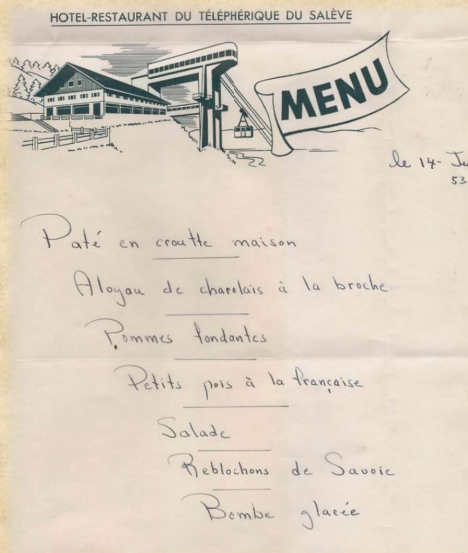 HOTEL-RESTAURANT DU TÉLÉPHÉRIQUE DU SALÈVE
MENU
le 14- Ju
53
Paté en croutte maison
Aloyau de charolais à la broche
Pommes fondantes
Petits pois à la française
Salade
Reblochons de Savoie
Bombe glacée